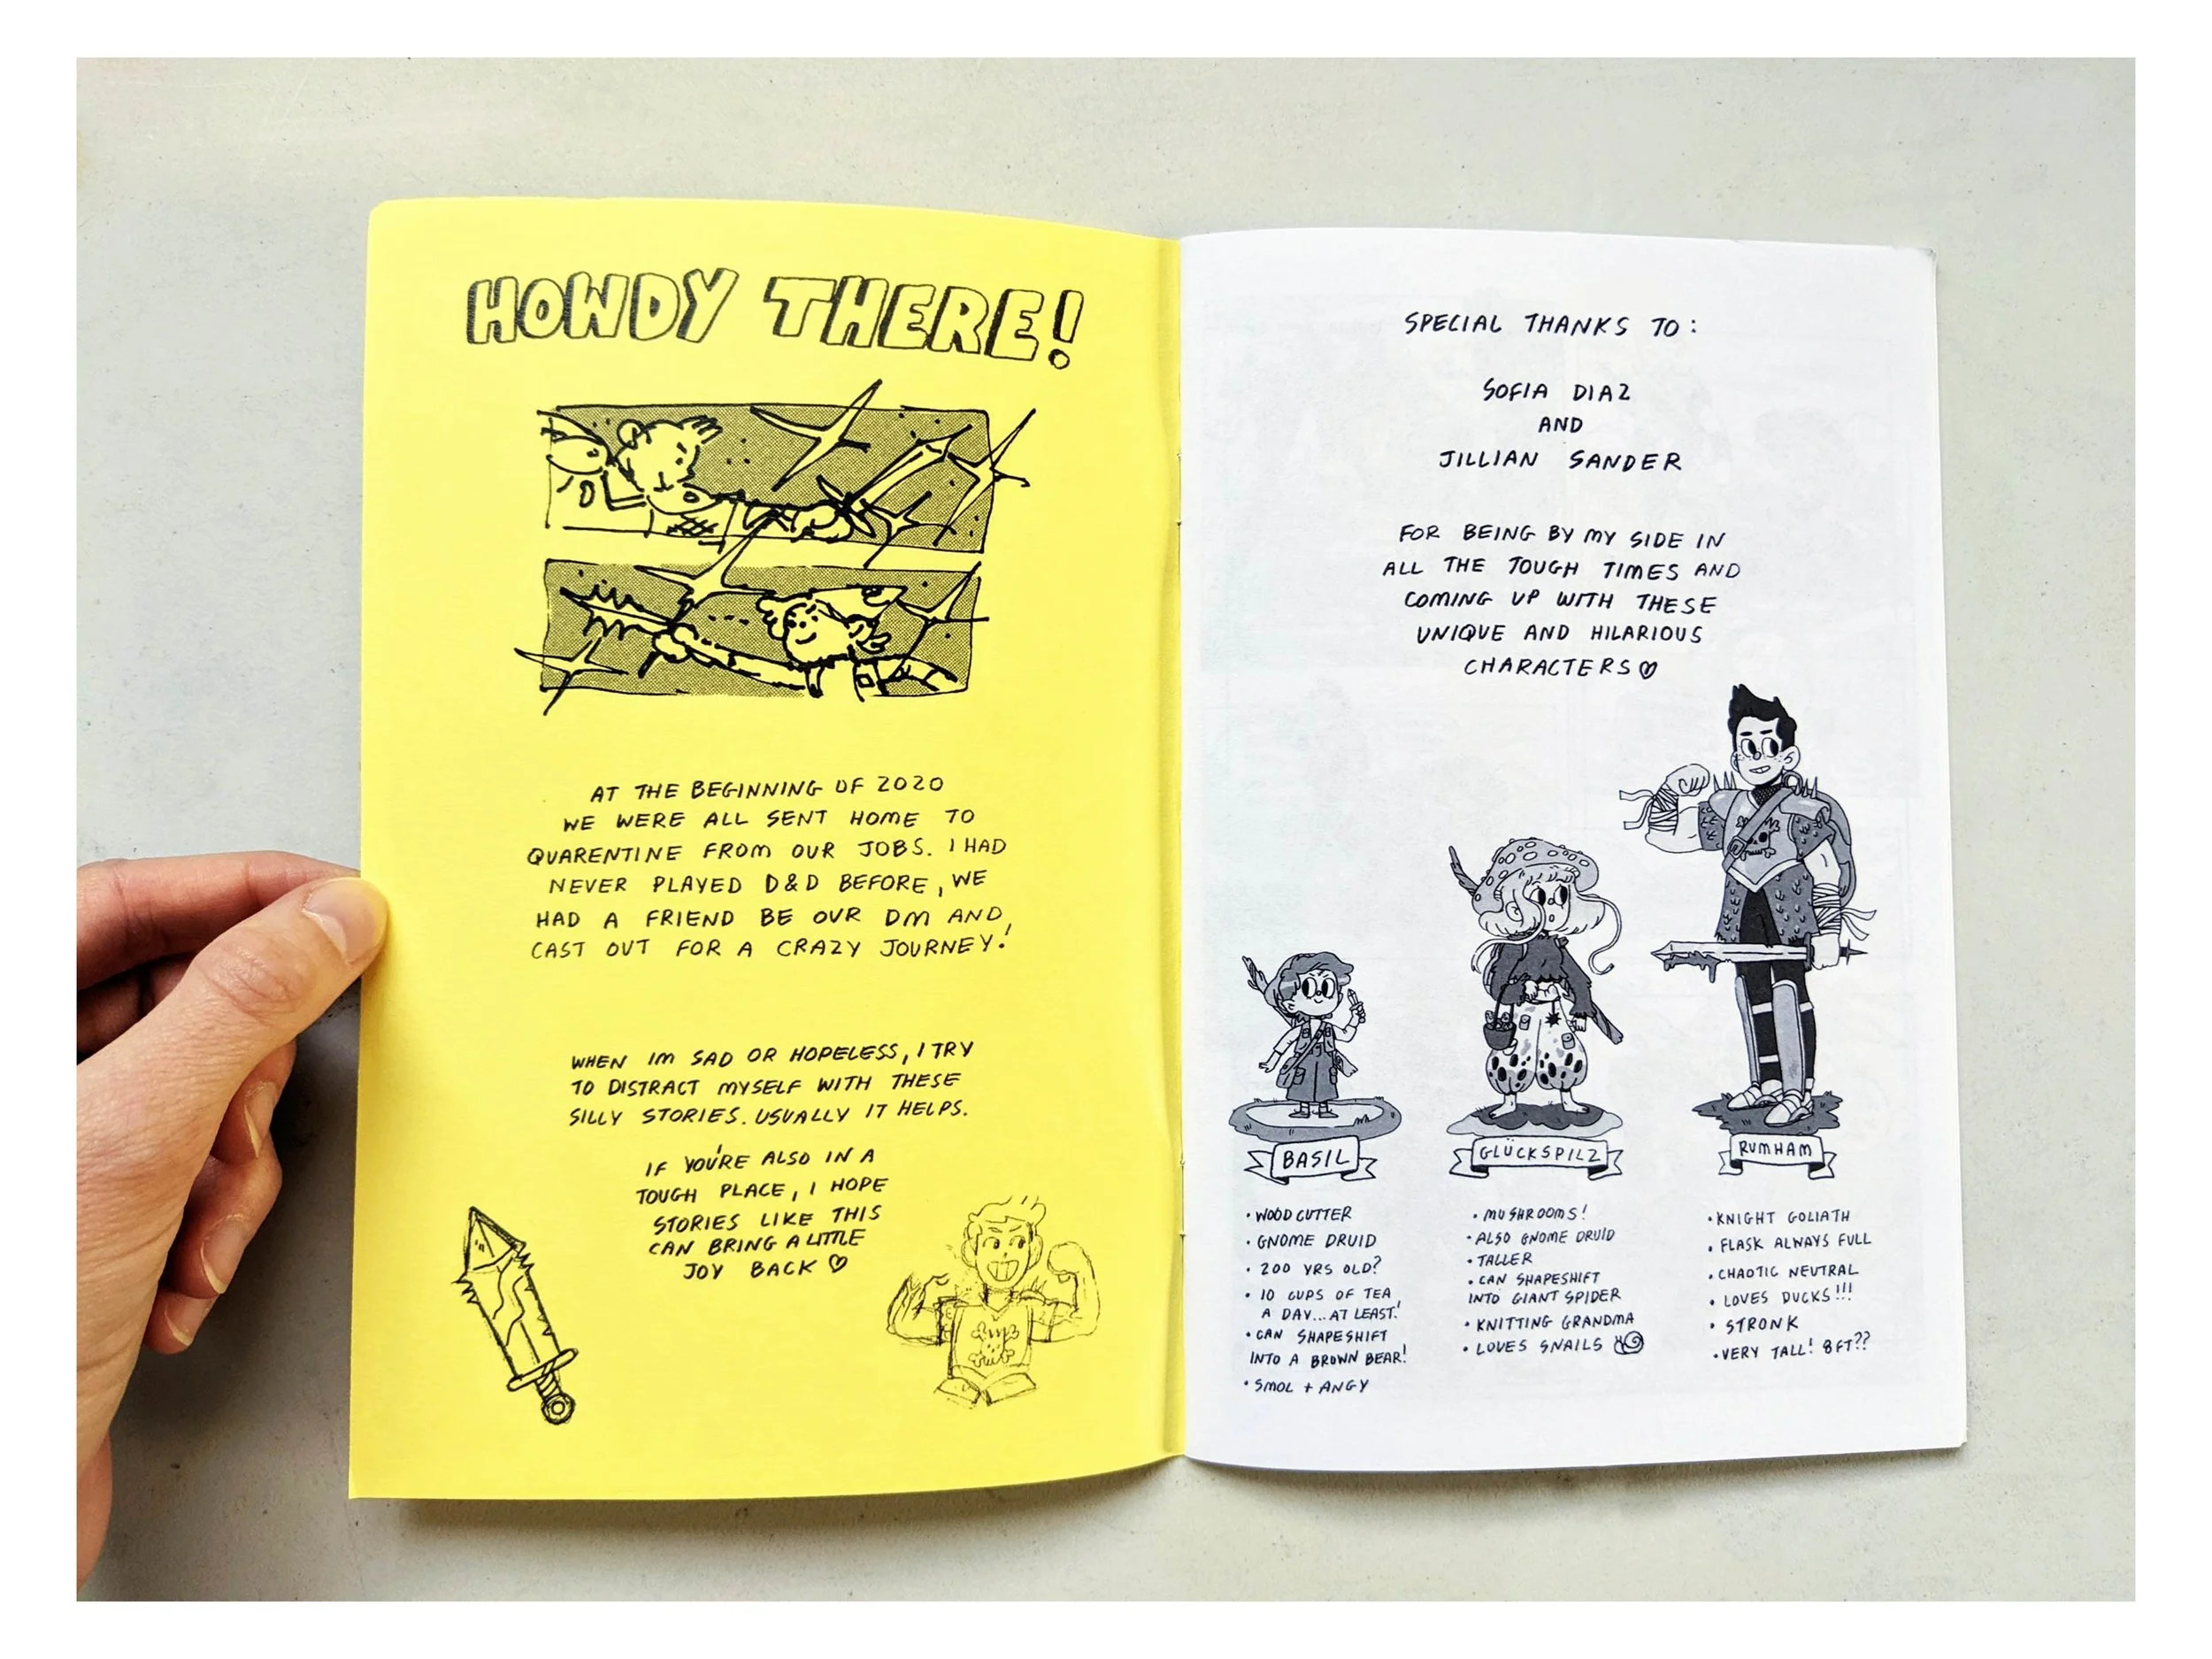 HOWDY THERE!
AT THE BEGINNING OF 2020
WE WERE ALL SENT HOME TO
QUARENTINE FROM OUR JOBS. I HAD
NEVER PLAYED D&D BEFORE, WE
HAD A FRIEND BE OUR DM AND
CAST OUT FOR A CRAZY JOURNEY!
WHEN IM SAD OR HOPELESS, I TRY
TO DISTRACT MYSELF WITH THESE
SILLY STORIES. USUALLY IT HELPS.
IF YOU'RE ALSO IN A
TOUGH PLACE, I HOPE
STORIES LIKE THIS
CAN BRING A LITTLE
JOY BACK ♡
SPECIAL THANKS TO:
SOFIA DIAZ
AND
JILLIAN SANDER
FOR BEING BY MY SIDE IN
ALL THE TOUGH TIMES AND
COMING UP WITH THESE
UNIQUE AND HILARIOUS
CHARACTERS ♡
BASIL
• WOODCUTTER
• GNOME DRUID
• 200 YRS OLD?
• 10 CUPS OF TEA
A DAY... AT LEAST!
• CAN SHAPESHIFT
INTO A BROWN BEAR!
• SMOL + ANGY
GLÜCKSPILZ
• MUSHROOMS!
• ALSO GNOME DRUID
• TALLER
• CAN SHAPESHIFT
INTO GIANT SPIDER
• KNITTING GRANDMA
• LOVES SNAILS
RUMHAM
• KNIGHT GOLIATH
• FLASK ALWAYS FULL
• CHAOTIC NEUTRAL
• LOVES DUCKS!!!
• STRONK
• VERY TALL! 8FT??